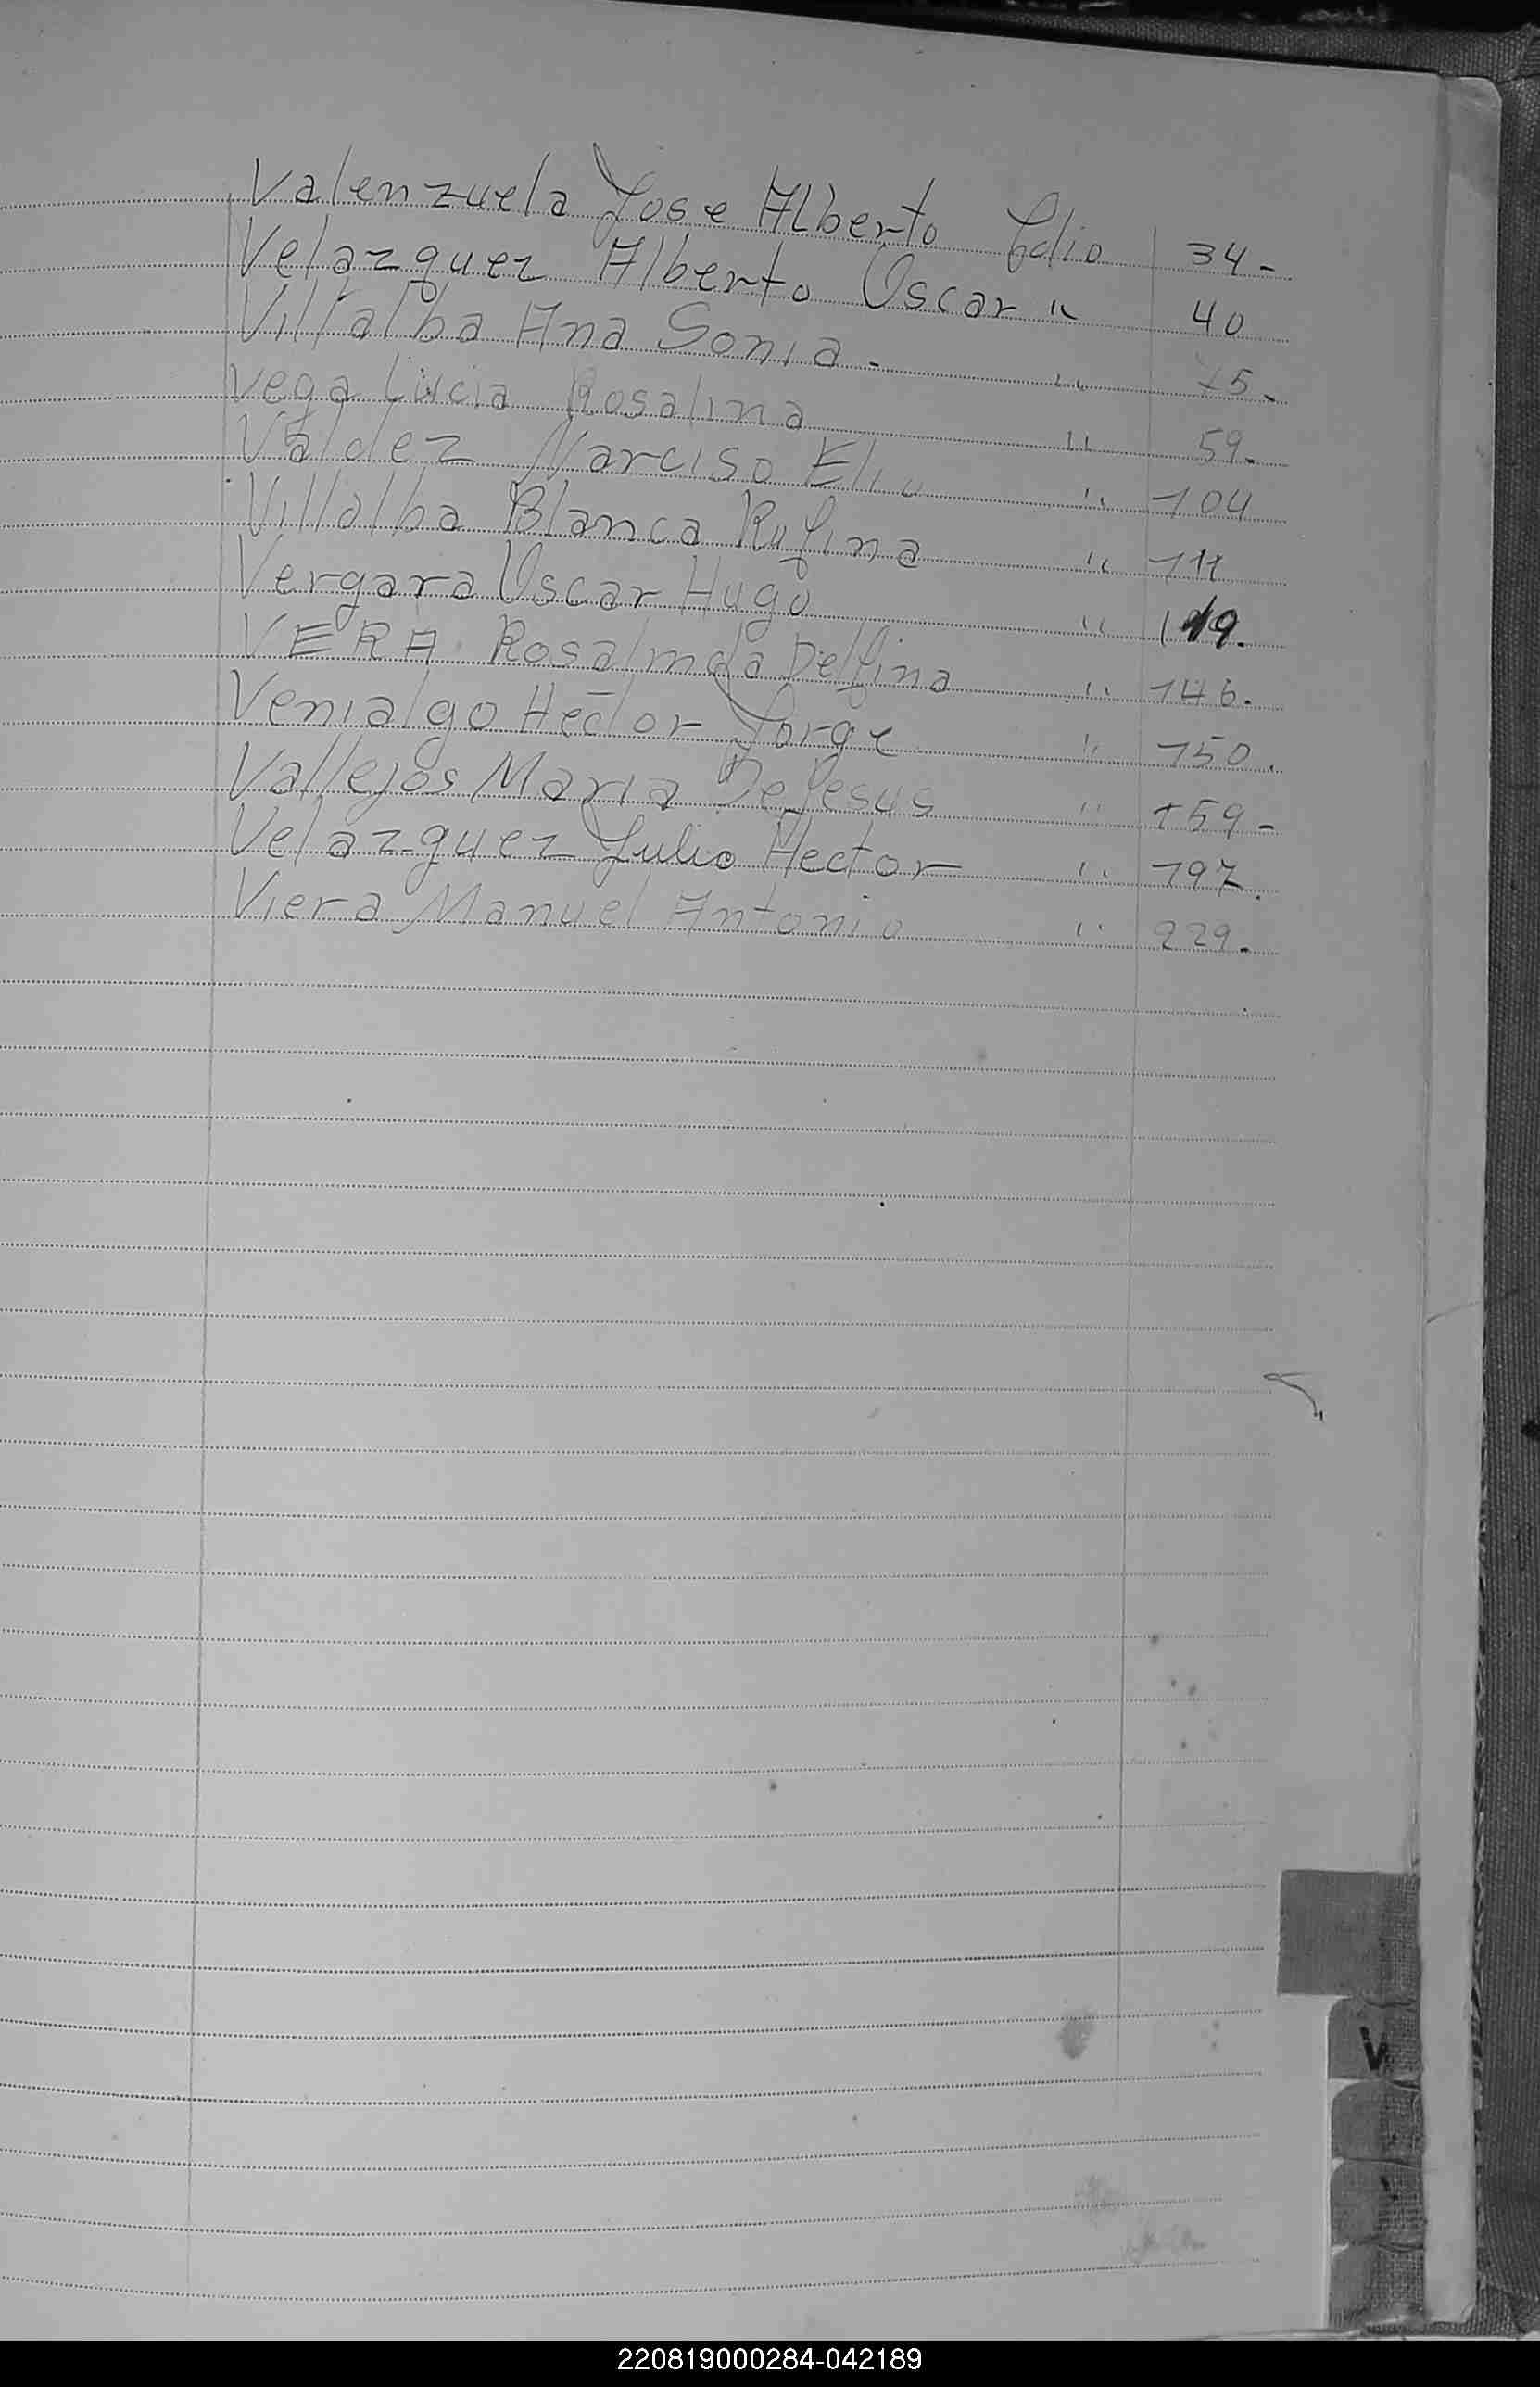 Valenzuela Jose Alberto folio 34-
Velazquez Alberto Oscar " 40
Villalba Ana Sonia - " 45.
Vega Lucia Rosalina " 59.
Valdez Narciso Elio " 104
Villalba Blanca Rufina " 111
Vergara Oscar Hugo " 119.
VERA Rosalinda Delfina " 146.
Venialgo Hector Jorge " 150.
Vallejos Maria DeJesus " 159-
Velazquez Julio Hector " 197.
Viera Manuel Antonio " 229.
V
220819000284-042189